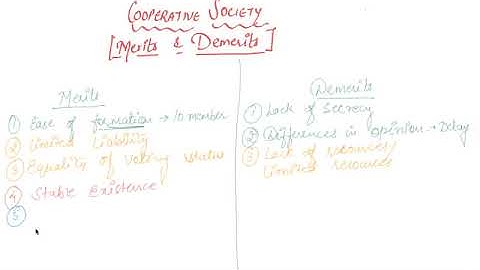 COOPERATIVE SOCIETY
[Merits & Demerits]
Merits
① Ease of formation → 10 member
② Limited Liability
③ Equality of Voting status
④ Stable Existence
⑤
Demerits
① Lack of Secrecy
② Differences in opinion → Delay
③ Lack of resources/
Limited resources